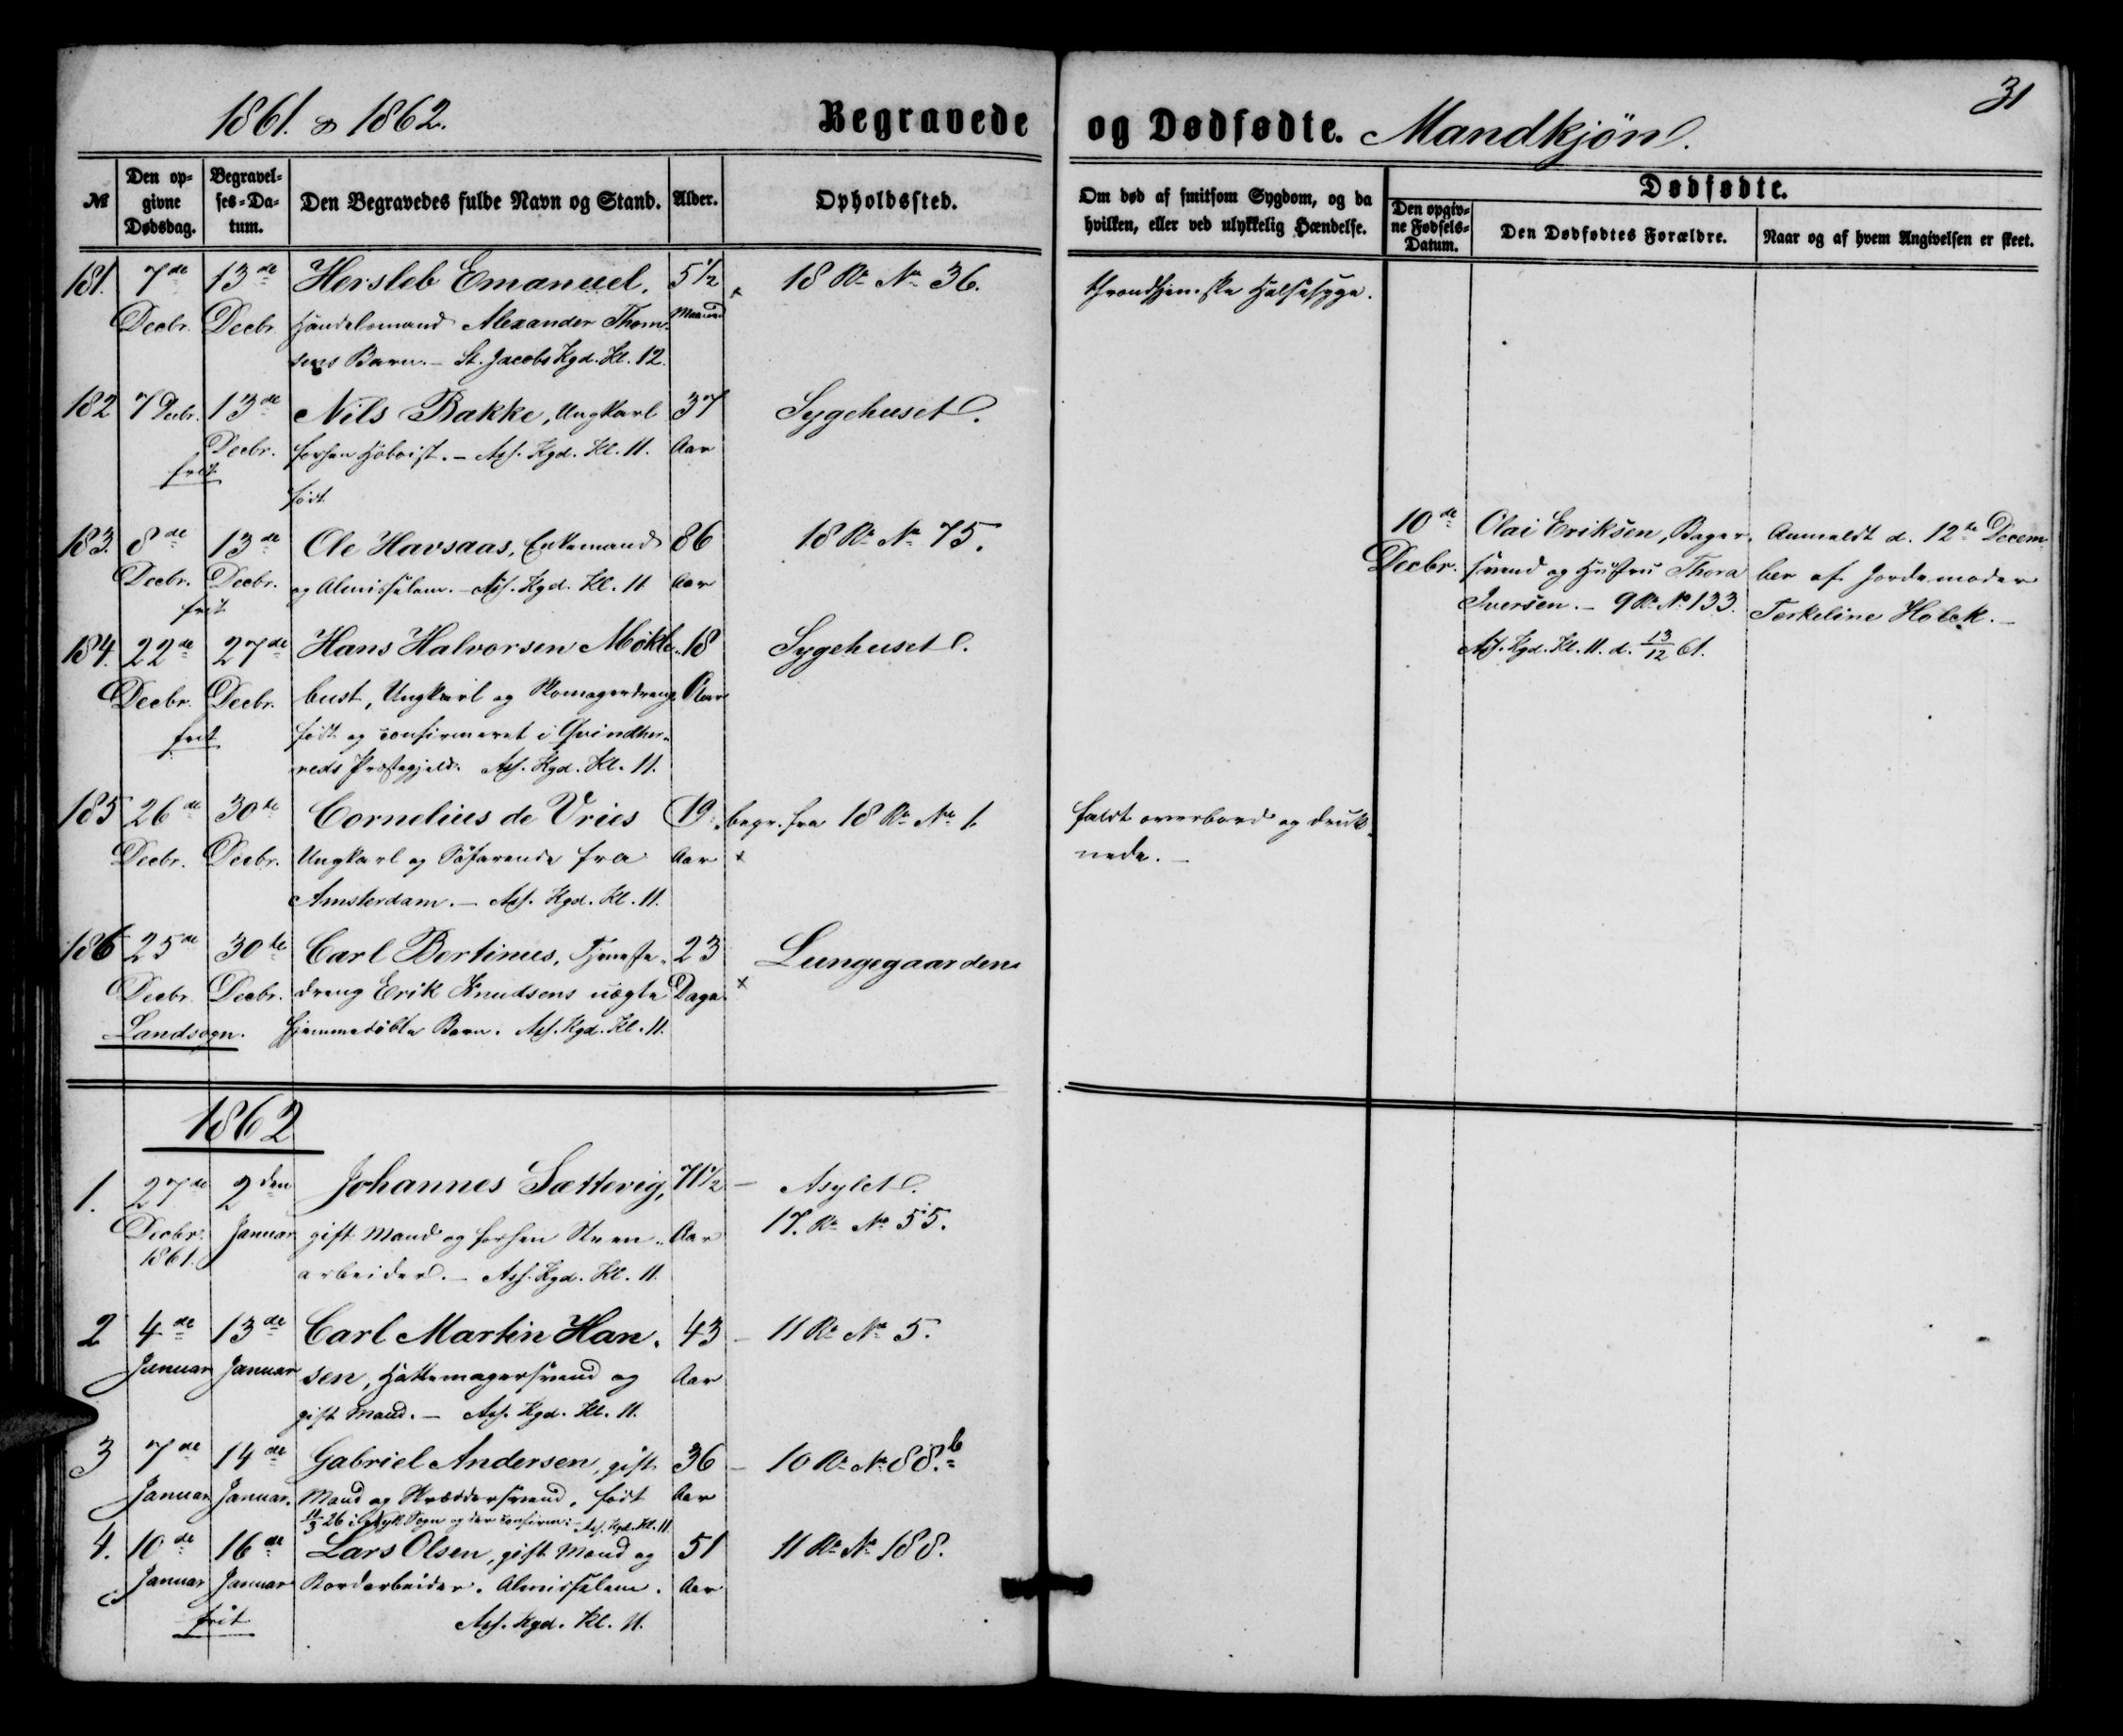 1861. & 1862.
Begravede og Dødfødte. Mandkjøn.
31
№
Den opgivne Dødsdag.
Begravelses-Datum.
Den Begravedes fulde Navn og Stand.
Alder.
Opholdssted.
Om død af smitsom Sygdom, og da hvilken, eller ved ulykkelig Hændelse.
Dødfødte.
Den opgivne Fødsels-Datum.
Den Dødfødtes Forældre.
Naar og af hvem Angivelsen er skeet.
181. 7de 13de Hersleb Emanuel, 5 1/2 18 R. No 36. throndhjemske Halssyge.
Decbr. Decbr. Handelsmand Alexander Thom- Maaned
sens Barn. – St. Jacobs Kgd. Kl. 12.
182 7 Decbr. 13de Nils Bakke, Ungkarl 37 Sygehuset.
Decbr. forhen Hoboist. – Ass. Kgd. Kl. 11. Aar
frit
født
183. 8de 13de Ole Havsaas, Enkemand 86 18 R. No 75.
Decbr. Decbr. og Almisselem. – Ass. Kgd. Kl. 11 Aar
frit
10de Olai Eriksen, Bager- Anmeldt d. 12te Decem-
Decbr. svend og Hustru Thora ber af Jordemoder
Iversen. – 9 R. No 133. Terkeline Holck. –
Ass. Kgd. Kl. 11. d. 13/12 61.
184. 22de 27de Hans Halvorsen Møkle- 18 Sygehuset.
Decbr. Decbr. bust, Ungkarl og Skomagerdreng Aar
frit født og confirmeret i Qvindher-
reds Præstegjeld. Ass. Kgd. Kl. 11.
185 26de 30te Cornelius de Vries 19 begr. fra 18 R. No 1. faldt overbord og druk-
Decbr. Decbr. Ungkarl og Søfarende fra Aar x nede. –
Amsterdam. – Ass. Kgd. Kl. 11.
186 25de 30te Carl Bertinus, Tjeneste- 23 Lungegaarden
Decbr. Decbr. dreng Erik Knudsens uægte Dage x
Landsogn. hjemmedøbte Barn. Ass. Kgd. Kl. 11.
1862
1. 27de 2den Johannes Sættevig, 71 1/2 – Asylet.
Decbr. Januar gift Mand og forhen Steen- Aar 17. R. No 55.
1861. arbeider. – Ass. Kgd. Kl. 11.
2 4de 13de Carl Martin Han- 43 – 11 R. No 5.
Januar Januar sen, Hattemagersvend og Aar
gift Mand. – Ass. Kgd. Kl. 11.
3 7de 14de Gabriel Andersen, gift 36 – 10 R. No 88.b
Januar Januar. Mand og Skræddersvend, født Aar
26 i Sogn og der confirm: – Ass. Kgd. Kl. 11.
4. 10de 16de Lars Olsen, gift Mand og 51 11 R. No 188.
Januar Januar Bordarbeider. Almisselem. Aar
frit Ass. Kgd. Kl. 11.